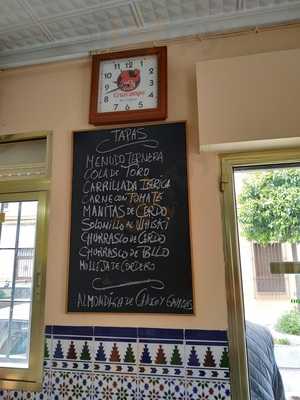 12
11 1
10 2
9 3
Cruzcampo
8 4
7 5
6
TAPAS
MENUDO TERNERA
COLA DE TORO
CARRILLADA IBERICA
CARNE CON TOMATE
MANITAS DE CERDO
SOLOMILLO AL WHISKY
CHURRASCO DE CERDO
CHURRASCO DE POLLO
MOLLEJA DE CORDERO
ALMONDIGA DE CHOCO Y